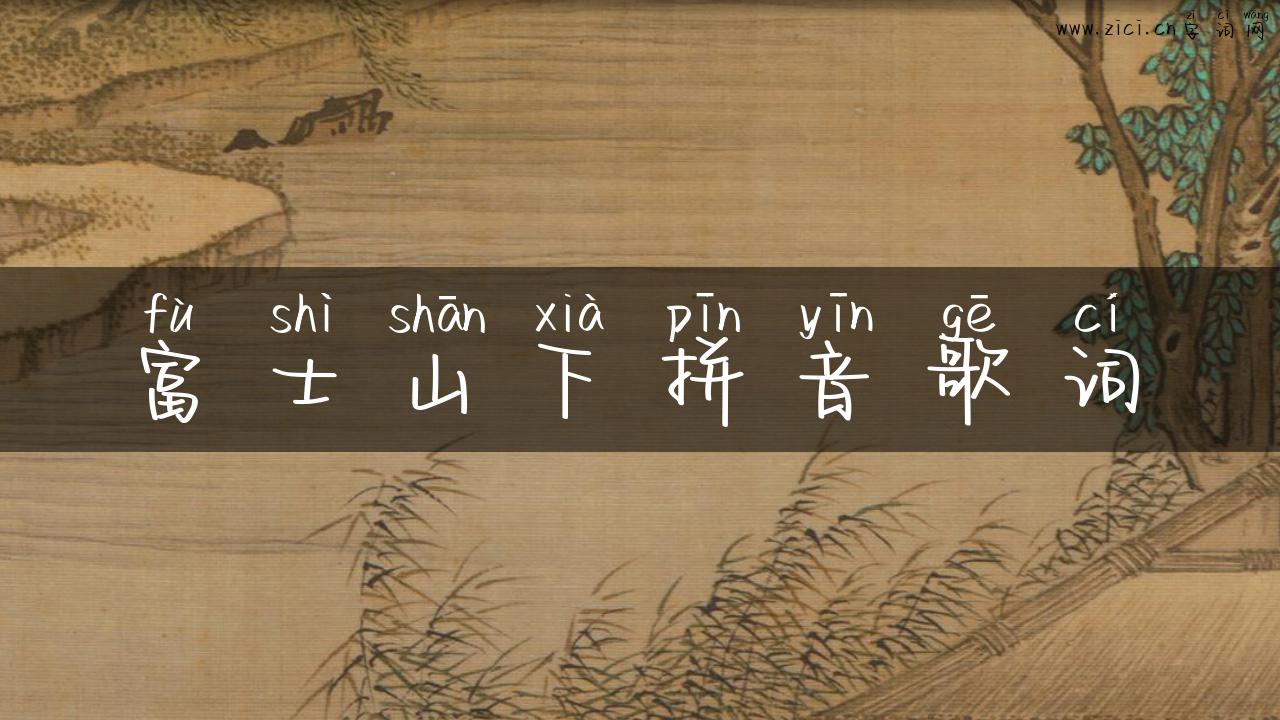 zì cí wǎng
www.zici.cn字词网
fù shì shān xià pīn yīn gē cí
富士山下拼音歌词